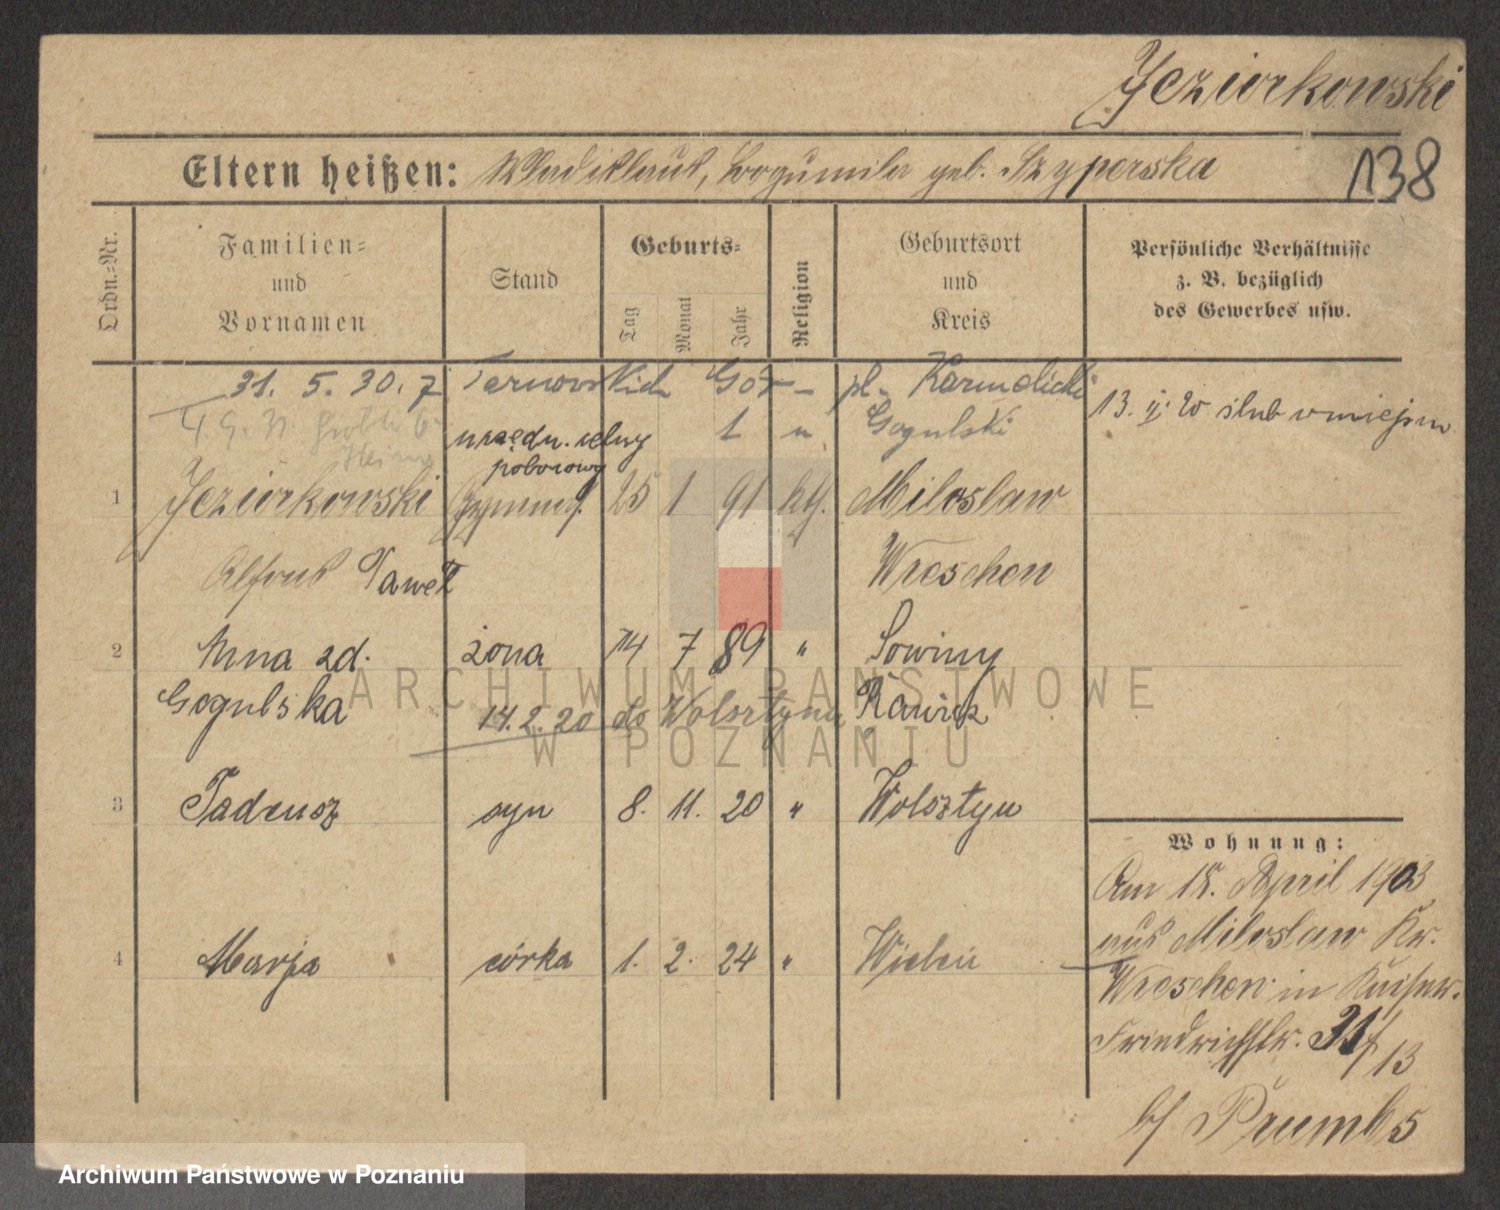 Jeziorkowski
Eltern heißen: Wladislaus, Bogumila geb. Szyperska
138
Ordn.-Nr.
Familien-
und
Vornamen
Stand
Geburts-
Tag
Monat
Jahr
Religion
Geburtsort
und
Kreis
Persönliche Verhältnisse
z. B. bezüglich
des Gewerbes usw.
31. 5. 30. z Tarnowskich Gór - pl. Karmelicki
1 u Gogulski
13. II. 20 ślub w miejscu
urzędn. celny
poborowy
1 Jeziorkowski 25 1 91 kth. Miloslaw
Alfons Paweł Wreschen
2 Anna zd. żona 14 7 89 " Sowiny
Gogulska 14.2.20 do Wolsztyna Rawicz
3 Tadeusz syn 8. 11. 20 " Wolsztyn
4 Marja córka 1. 2. 24 "
Wohnung:
Am 15. April 1903
aus Miloslaw Kr.
Wreschen in Kaiser.
Friedrichstr. 31/
13
b/ Prumbs
ARCHIWUM PAŃSTWOWE
W POZNANIU
Archiwum Państwowe w Poznaniu